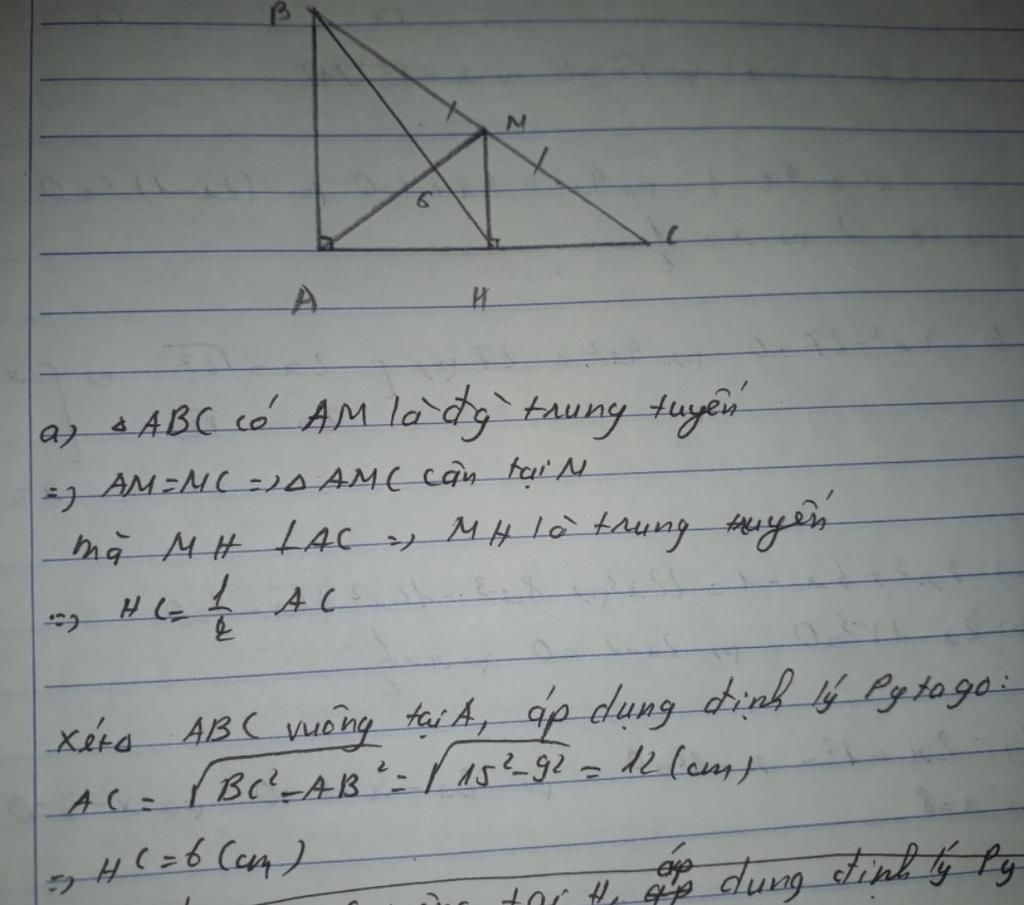 B
M
6
C
A H
a, Δ ABC có AM là đg̀ trung tuyến
=> AM=MC => Δ AMC cân tại M
mà MH ⊥ AC => MH là trung tuyến
=> HC = 1/2 AC
xét Δ ABC vuông tại A, áp dụng định lý Pytago:
AC = √BC²-AB² = √15²-9² = 12 (cm)
=> HC = 6 (cm)
tại H, áp dụng định lý Py